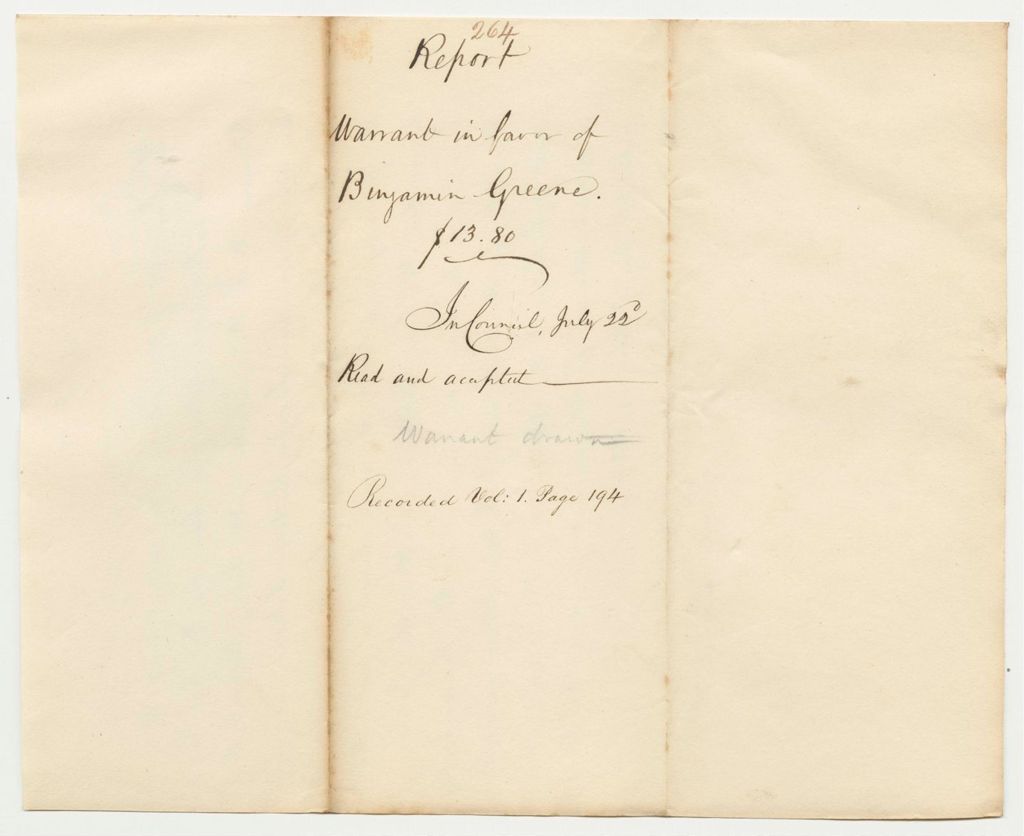 264
Report
Warrant in favor of
Benjamin Greene.
$13.80
In Council, July 22d
Read and accepted
Warrant drawn
Recorded Vol: 1. Page 194